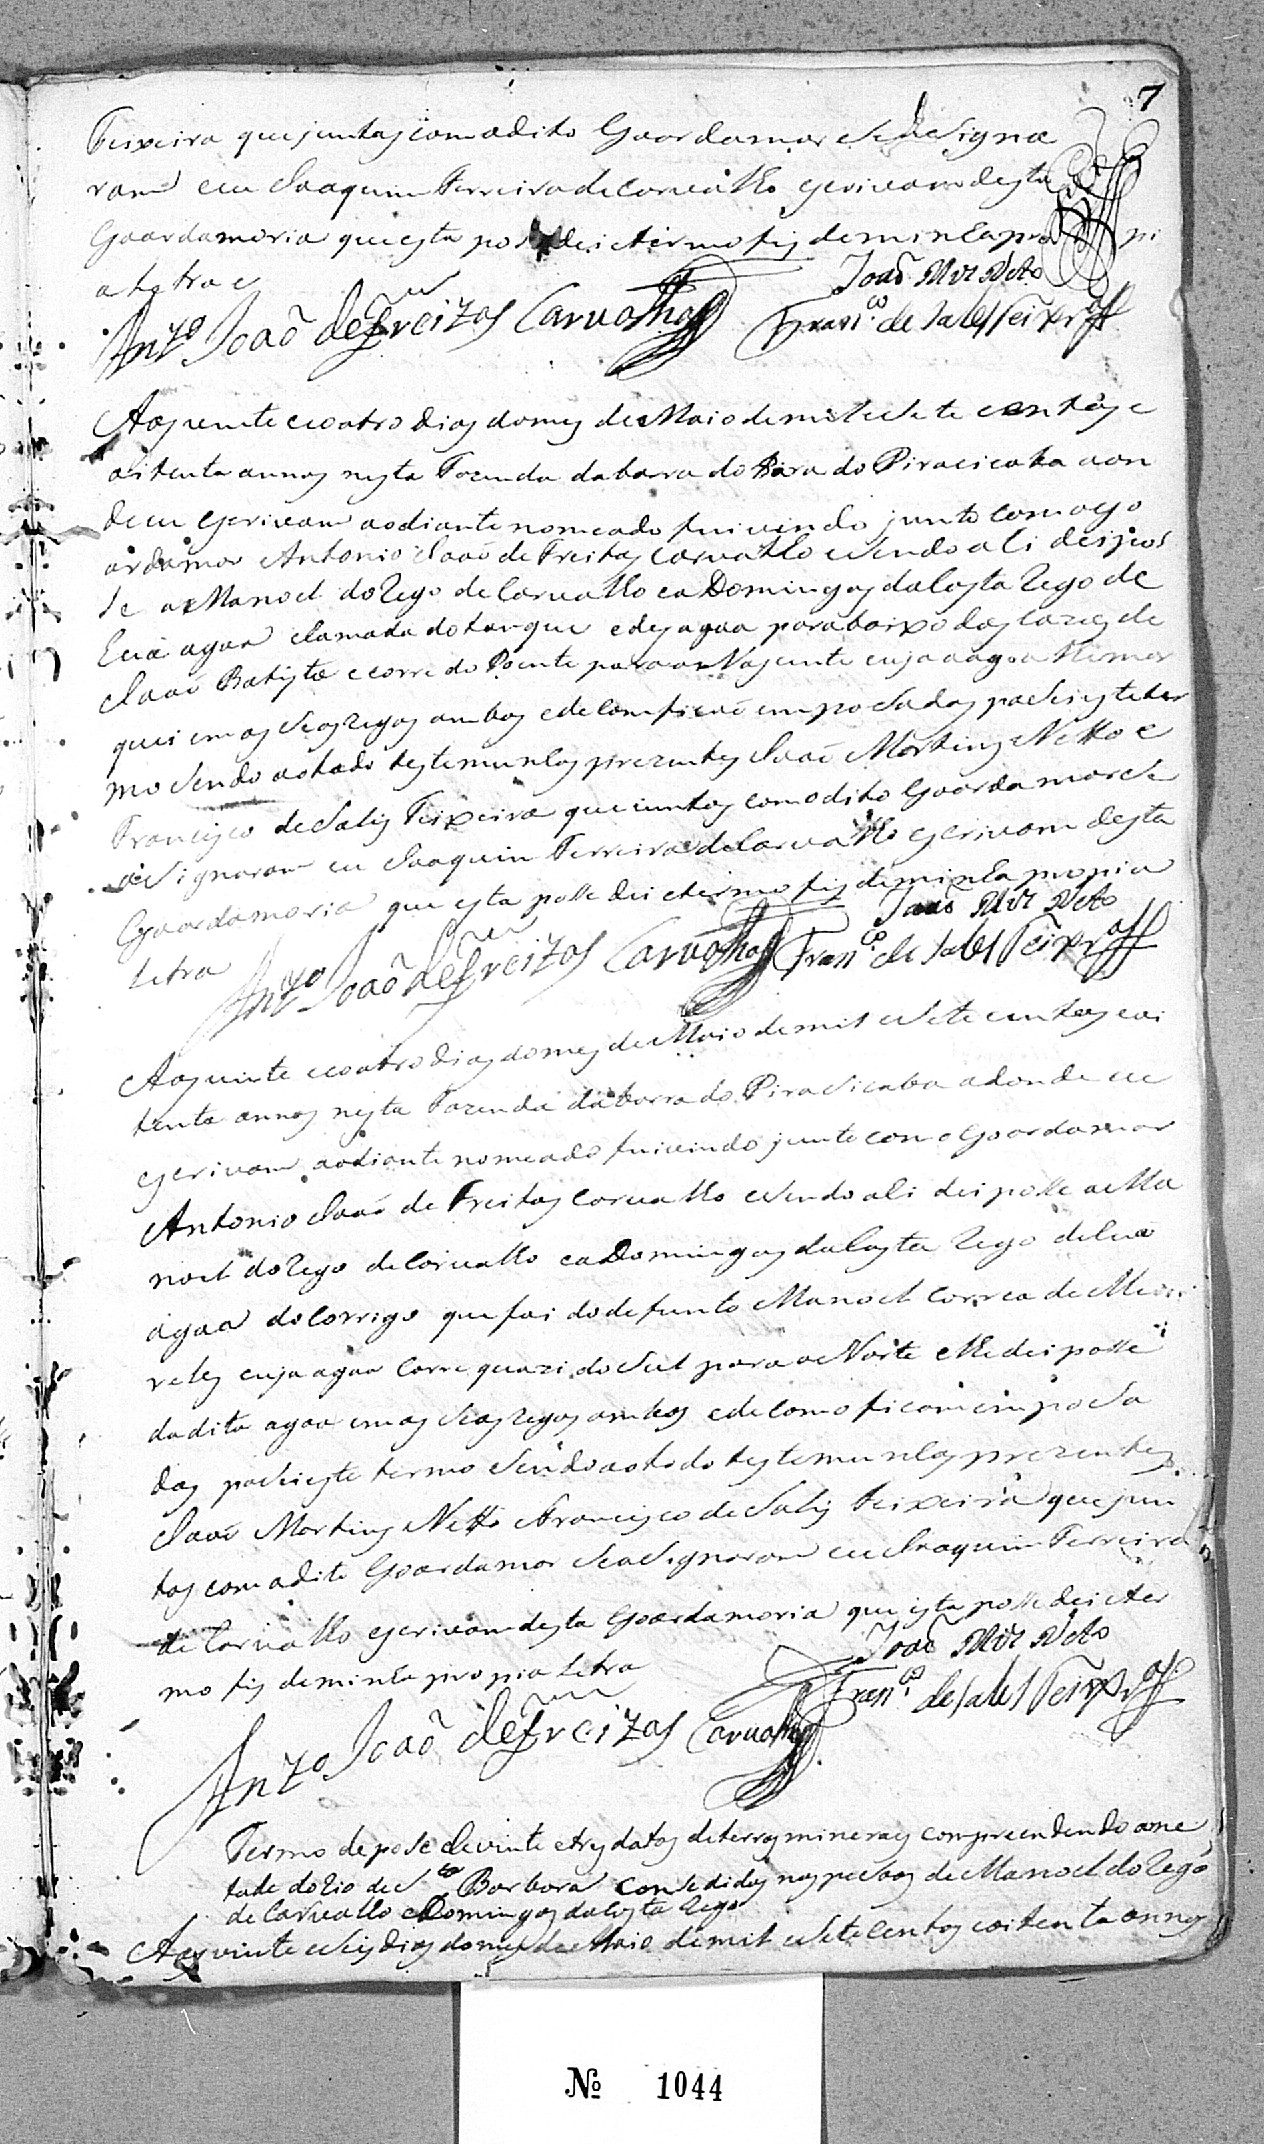 7
Teixeira que juntos com o dito Goardamor se asigna
ram eu Joaquim Ferreira de Carvalho escrivam desta
Goardamoria que esta pose dei e termo fis de minha pro pi
a letra e
João Miz Neto
Antº João de Freitas Carvalho Franᶜᵒ de Sales Teixrª
Aos vinte e coatro dias do mes de Maio de mil e sete centos e
oitenta annos nesta Fazenda da barra do Piracicaba aon
de eu escrivam ao diante nomeado fui vindo junto com o go
ardamor Antonio João de Freitas Carvalho e sendo ali dei pos
se a Manoel do Rego de Carvalho e a Domingos da Costa Rego de
hua agoa chamada do tanque e desagoa para baixo das cazas de
João Batista e corre do Poente para o Nascente cuja agoa
que em os seos regos ambos e de com ficaõ emposados pasei este ter
mo sendo a todo testemunhas prezentes João Martins Netto e
Francisco de Sales Teixeira que juntos com o dito Goarda mor se
asignaram eu Joaquim Ferreira de Carvalho escrivam desta
Goardamoria que esta posse dei e termo fis de minha propia
letra
João Miz Neto
Antº João de Freitas Carvalho Franᶜᵒ de Sales Teixrª
Aos vinte e coatro dias do mes de Maio de mil e sete centos e oi
tenta annos nesta Fazenda da barra do Pirasicaba adonde eu
escrivam ao diante nomeado fui vindo junto com o Goardamor
Antonio João de Freitas Carvalho e sendo ali dei posse a Ma
noel do Rego de Carvalho e a Domingos da Costa Rego de hua
agoa do corrigo que foi do defunto Manoel Correa de
cuja agoa corre quazi do Sul para o Norte e lhe dei posse
da dita agoa em os seos regos ambos e de como ficam imposa
dos pasei este termo sendo a todo testemunhas prezentes
João Martins Netto e Francisco de Sales Teixeira que jun
tos com o dito Goardamor se asignaram eu Joaquim Ferreira
de Carvalho escrivam desta Goardamoria que esta posse dei e ter
mo fis de minha propia letra
João Miz Neto
Franᶜᵒ de Sales Teixrª
Antº João de Freitas Carvalho
Termo de pose de vinte e tres datas de terras mineraes compreendendo a me
tade do Rio de Sᵗᵃ Barbora consedidas nas pesoas de Manoel do Rego
de Carvalho e Domingos da Costa Rego
Aos vinte e seis dias do mes de Maio de mil e sete centos e oitenta annos
№ 1044